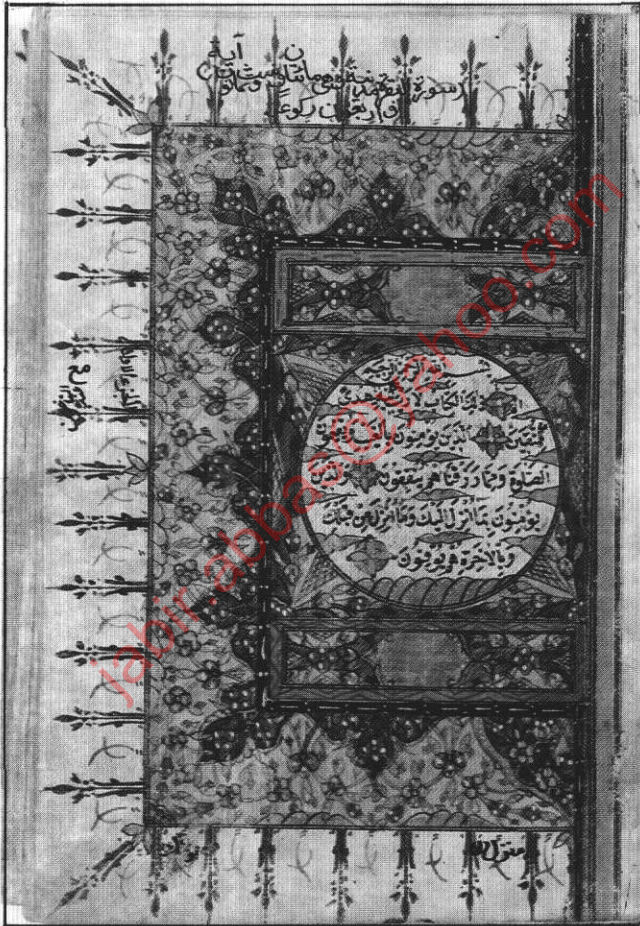 سورة البقرة مدنية وهي مائتان وست وثمانون آية
واربعين ركوعاً
بسم الله الرحمن الرحيم
ذلك الكتاب لا ريب فيه هدى
للمتقين الذين يؤمنون بالغيب ويقيمون
الصلوة ومما رزقناهم ينفقون والذين
يؤمنون بما انزل اليك وما انزل من قبلك
وبالاخرة هم يوقنون
jabir.abbas@yahoo.com